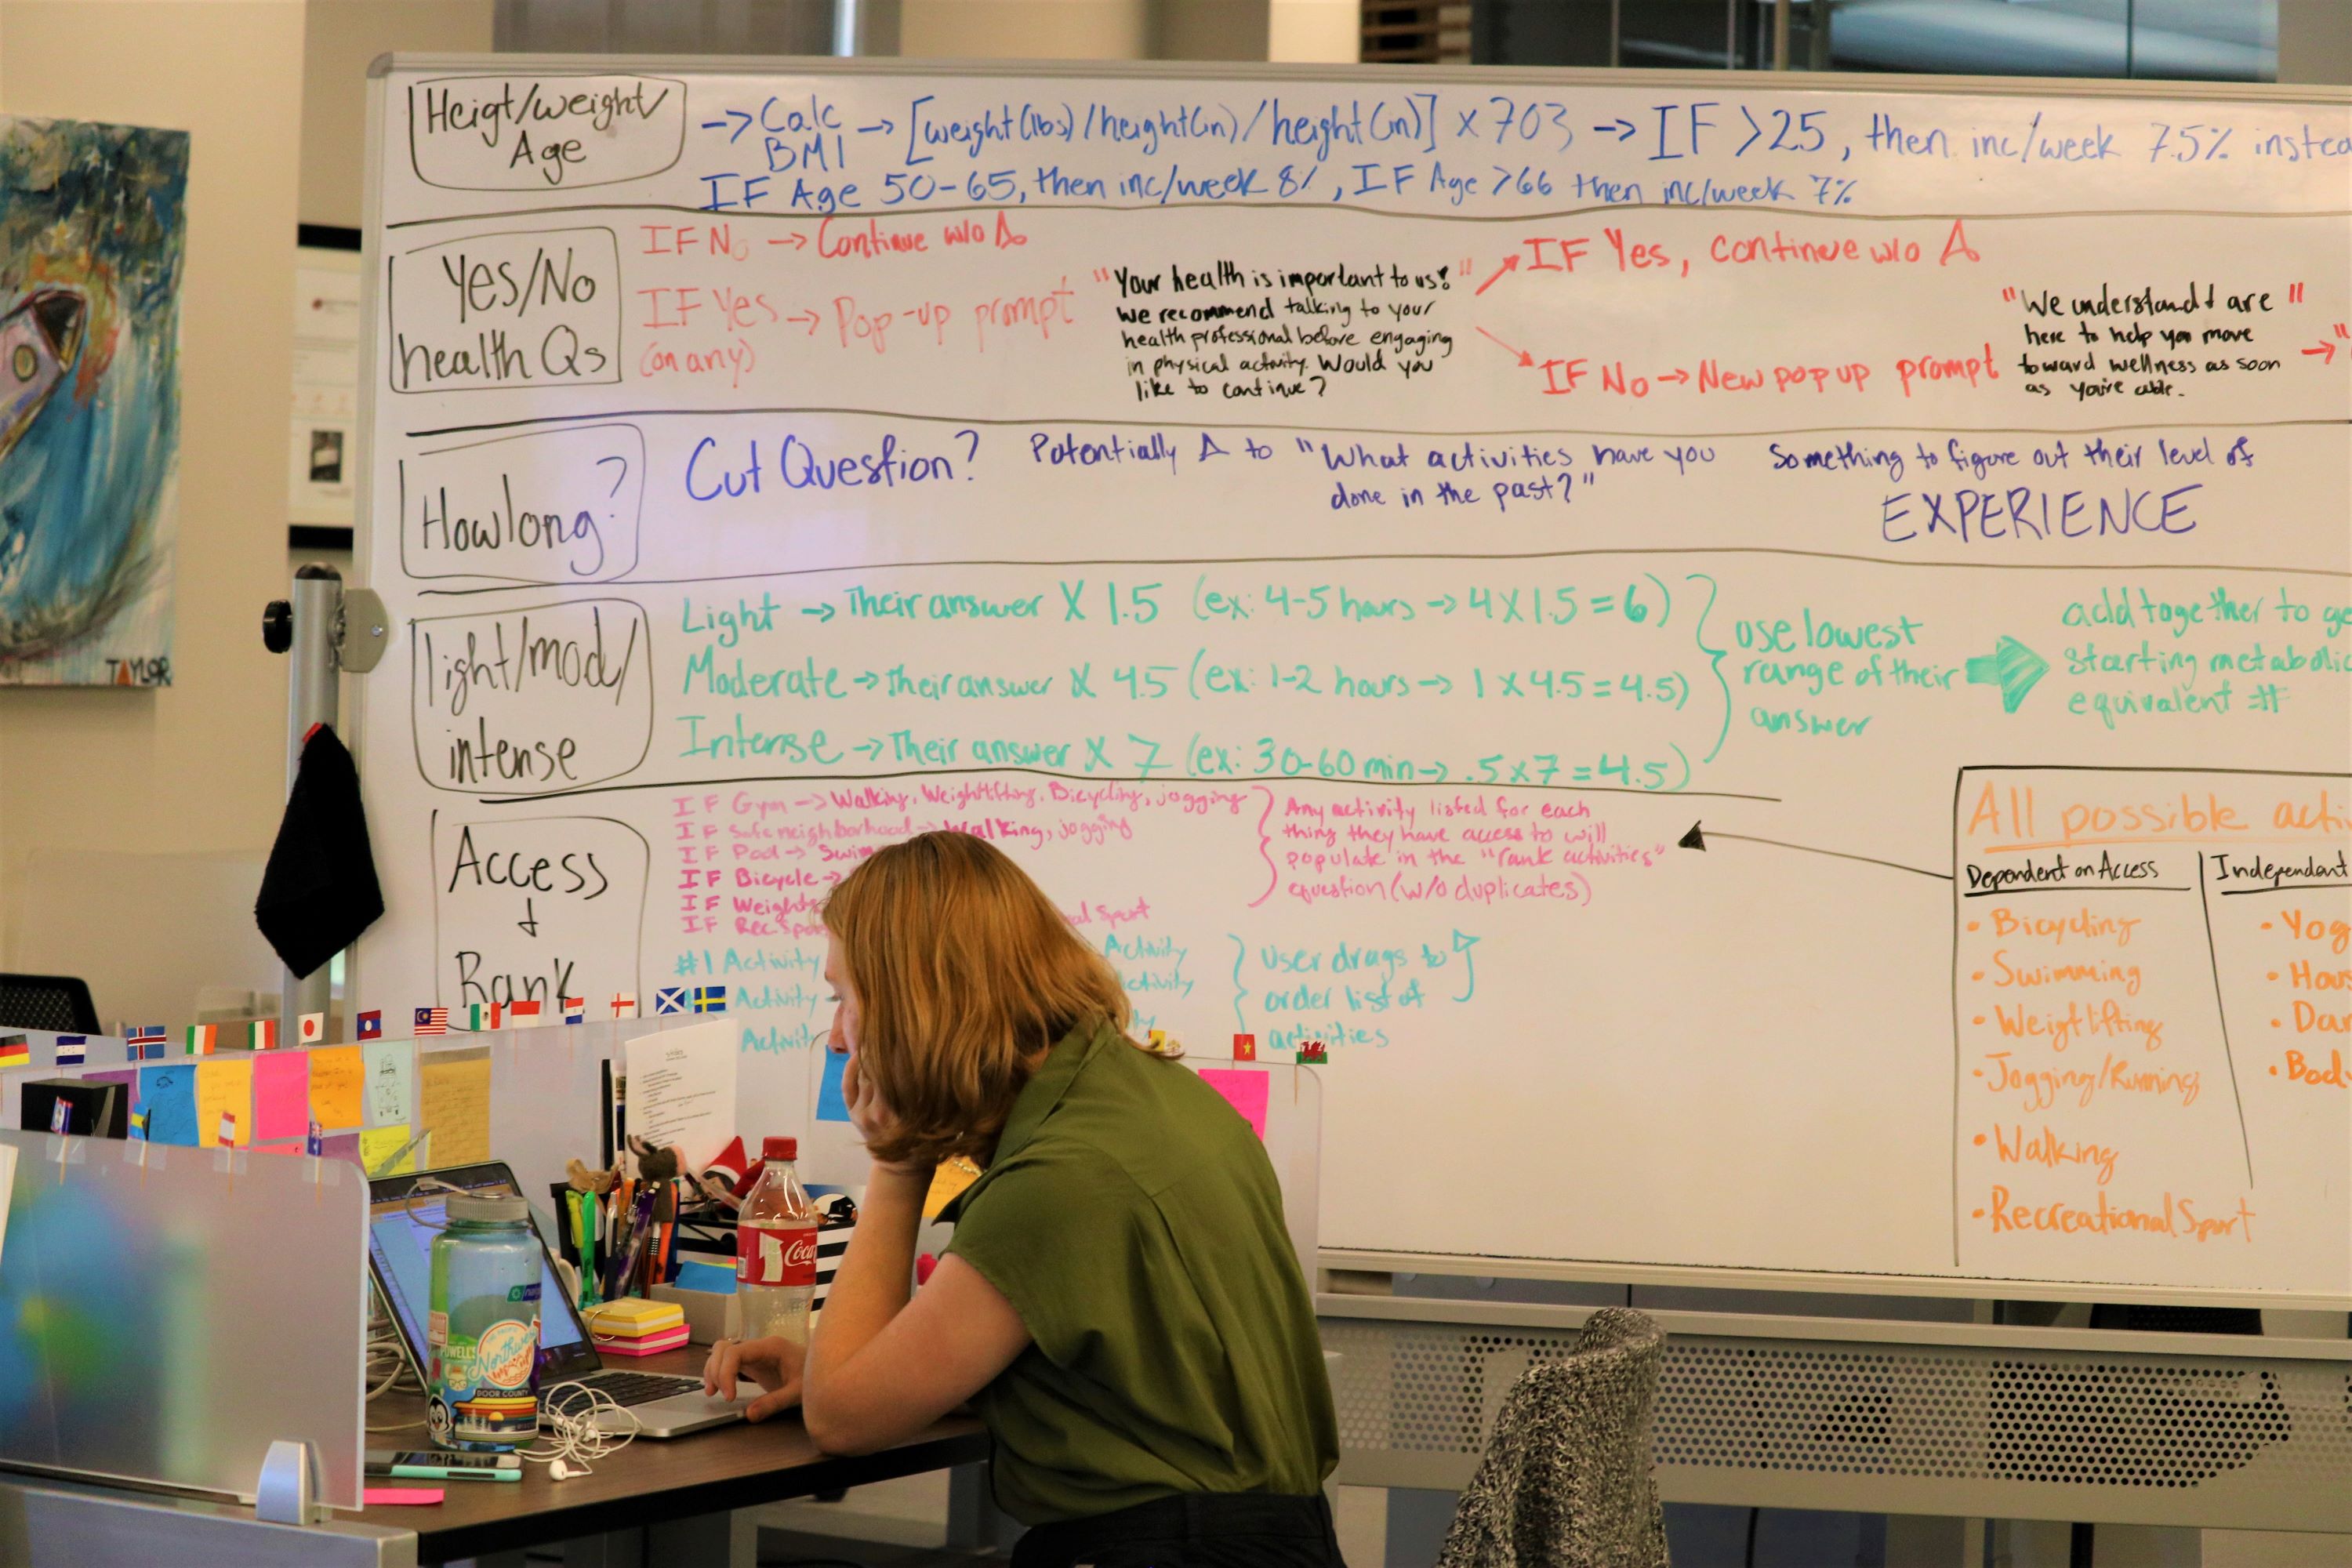 Heigt/weight/
Age
→ Calc
BMI → [weight(lbs)/height(in)/height(in)] x 703 → IF >25, then inc/week 7.5%
IF Age 50-65, then inc/week 8%, IF Age >66 then inc/week 7%
Yes/No
health Qs
IF No → Continue w/o Δ
IF Yes → Pop-up prompt
(on any)
"Your health is important to us!"
We recommend talking to your
health professional before engaging
in physical activity. Would you
like to continue?
IF Yes, continue w/o Δ
IF No → New pop up prompt
"We understand + are"
here to help you move
toward wellness as soon
as you're able.
→ "
How long?
Cut Question?
Potentially Δ to "What activities have you
done in the past?"
Something to figure out their level of
EXPERIENCE
light/mod/
intense
Light → Their answer X 1.5 (ex: 4-5 hours → 4 X 1.5 = 6)
Moderate → Their answer X 4.5 (ex: 1-2 hours → 1 X 4.5 = 4.5)
Intense → Their answer X 7 (ex: 30-60 min → .5 x 7 = 4.5)
use lowest
range of their
answer
add together to
starting metabolic
equivalent #
Access
+
Rank
IF Gym → Walking, Weightlifting, Bicycling, jogging
IF Safe neighborhood → Walking, jogging
IF Pool → Swim
IF Bicycle →
IF Weights
IF Rec. Spor
Sport
Any activity listed for each
thing they have access to will
populate in the "rank activities"
question (w/o duplicates)
#1 Activity
Activity
Activity
Activity
User drags to
order list of
activities
All possible acti
Dependent on Access
• Bicycling
• Swimming
• Weigtlifting
• Jogging/Running
• Walking
• Recreational Sport
Independant
• Yog
• Hous
• Dan
• Body
TAYLOR
Coca
POWELL'S
Northwe
DOOR COUNTY